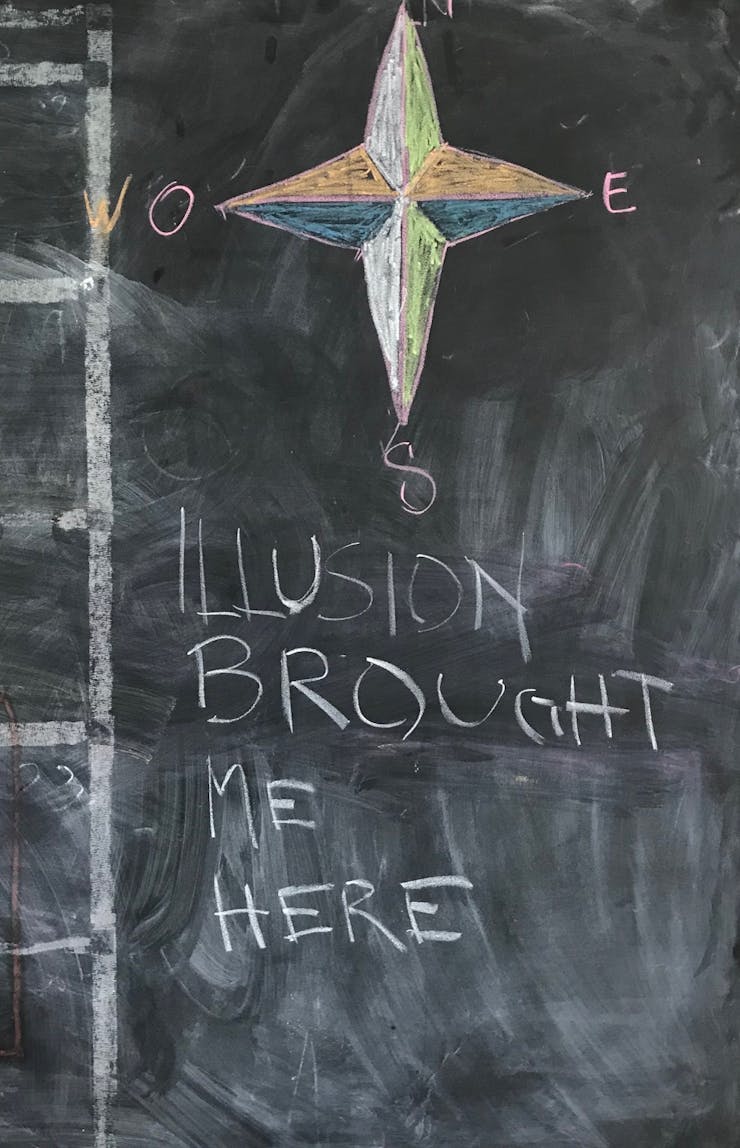 N
W O E
S
ILLUSION
BROUGHT
ME
HERE